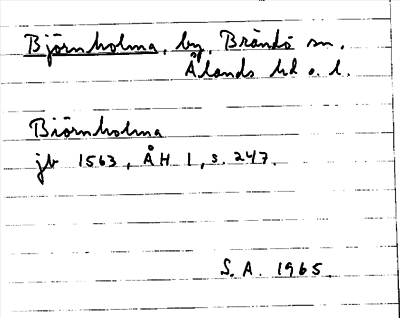 Björnholma, by, Brändö sn.
Ålands hd o. l.
Biörnholma
jb 1563, ÅH 1, s. 247.
S. A. 1965.